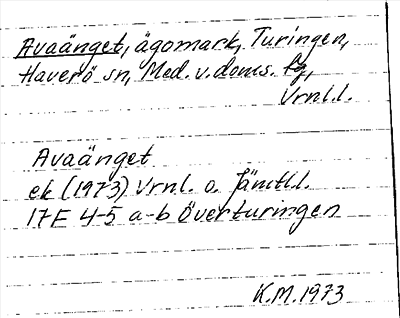 Avaänget, ägomark, Turingen,
Haverö sn, Med. v. doms. fg,
Vrnl.l.
Avaänget
ek (1973) Vrnl. o. Jämtl.l.
17E 4-5 a-b Överturingen
K.M. 1973